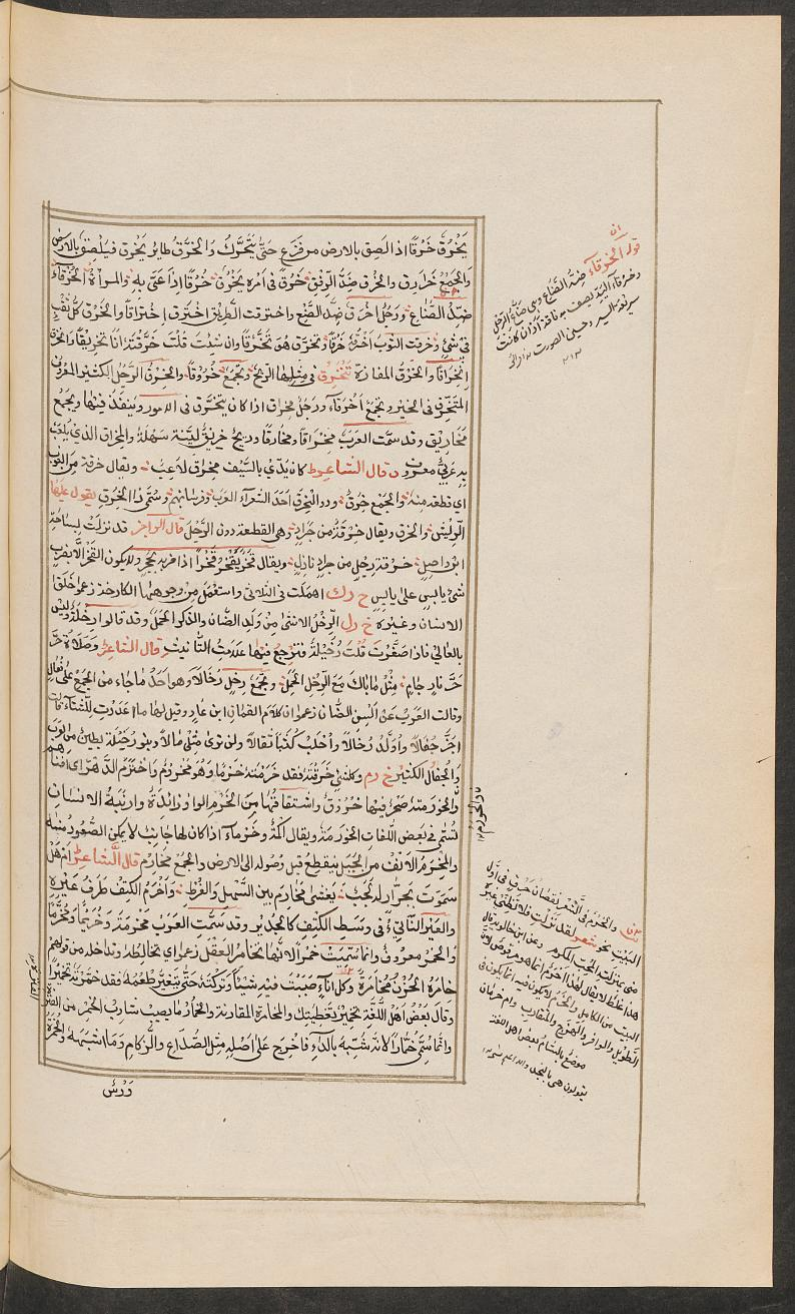 يَخْرُق خَرَقًا اذا لصق بالارض من فَزَع حَتّى يَتَحَرَّك وَالخُرَّق طاير يَخْرق فيَلْصق بالارض
والجمع خَرارق والخُرق ضدّ الرفق خَرُق فى امره يَخْرُق خُرْقًا اذا عَنّى به والمرأة الخَرْقاء
ضِدّ الصَّناع ورَجُل اخرق ضدّ الصَّنِع واخترقت الطريق اخترق اختراقًا والخرق كل نَقْب
فى شئ وخرقت الثوب اخرُقُه خرقًا وتخرّق هو تخَرُّقا وان شئت قلت خَرَّقْتُه انا تخريقًا وانخرق
انخراقًا والخَرْق المفازة تنخرق فى مثلها الريح وتجمع خُروقًا والخِرْق الرجل الكثير المعروف
المتَخَرِّق فى الخير ويجمع اخرقاء ورجل مخراق اذا كان يتخرّق فى الامور وينفذ فيها ويجمع
مَخاريق وقد سمّت العرب مخراقًا ومخارقًا وريح خريق ليّنة سَهْلة والمخراق الذى يلعب
به عَرَبىّ معروف قال الشاعر كان يَدَىّ بالسَّيف مخراق لاعب ويقال خرقة من الثوب
اى قطعة منه والجمع خرق وذو الخرق احَد الشعراء العرب وفرسانهم وسُمّى ذا الخرق بقول عليها
الريش والخرق ويقال خرقة من جَراد وهى القطعة دون الرِّجل قال الراجز قد نزلت بساحة
ابن واصل خرقة رِجْل من جراد نازل ويقال
شئ يابس على يابس خ ر ك اهملت فى الثلاثى واستعمل من وجوهها الكارخة زعموا حَلْق
الانسان وغيره خ ر ل الرِّخْل الانثى من وَلَد الضأن والذكر الحَمَل وقد قالوا رِخْلة وليس
بالعالى فاذا صغّرت قلت رُخَيْلة فترجع فيها علامت التانيث قال الشاعر وَصَلاءة حرّ
نار جاحم مثل ماباك مع الرِّخل الحمل وتجمع رخل رُخالا وهو احد ماجاء من الجمع على فُعال
وقالت العَرَب عن السن الضأن زعموا ان كلام لقمان ابن عاد وقيل لها ما اعددت للشتاء قالت
اجَزُّ جُفالا وأوَلَّد رُخالا واُحلب كُثَبًا ثقالا ولن ترى مثلى مالا وبنو رُخَيْلة بطين من العرب
والجفال الكثير خ ر م وكل شئ خرقته فقد خرمته خرمًا وهو مخروم واخترم الدَّهر اى افناهم
والخورمة صخر فيها خروق واشتقاقها من الخرم الواو زائدة وارنبة الانسان
تُسمّى فى بعض اللغات الخورمة ويقال اكمة خرماء اذا كان لها جانب لا يمكن الصعود منه
والمخرم الانف من الجبل ينقطع قبل وصوله الى الارض والجمع مخارم قال الشاعر ام هل
سَمَوتَ بجرّار له لَجَب يغشى مخارم بين السهل والفرط واخرم الكتف طَرَف عَيْره
والعَيْر الناتئ فى وسط الكتف كالجدير وقد سمّت العرب مخرمة وخريمًا ومخرّمًا
والخمر معروف وانما سمّيت خمرًا لانها تخامر العقل زعموا اى تخالطه وتداخله من قولهم
خامره الحزن مخامرة وكل اناء صببت فيه شيئًا وتركته حتى يتغيّر طعمه فقد خمّرته تخميرًا
وقال بعض اهل اللغة تخميره تغطيتك والمخامرة المقاربة والخُمار ما يصيب شارب الخمر من الصداع
وانما سُمّى خمارًا لانه شُبّه بالداء فاخرج على اصله مثل الصُّداع والزُّكام وما اشبهه والخُمْرة
ورْس
قوله الخرقاء ضدّ الصَّناع وهى صَنَاع الرجل
سريعة السير وحسن الصورت
والمخروم فى الشعر نقصان حرف فى اوّل
البيت نحو شعر لقد نزلت فلا تظنّى غيره
منى بمنزلة المحب المكرم وعن ابن خالويه قال
هذا غلط لا يقال لهذا
البيت من الكامل والخرم لا يكون فيه انما يكون فى
الطويل والوافر والهزج والمتقارب وام خرمان
موضع بعض اهل اللغة
يقولون هى بالجيم والله اعلم